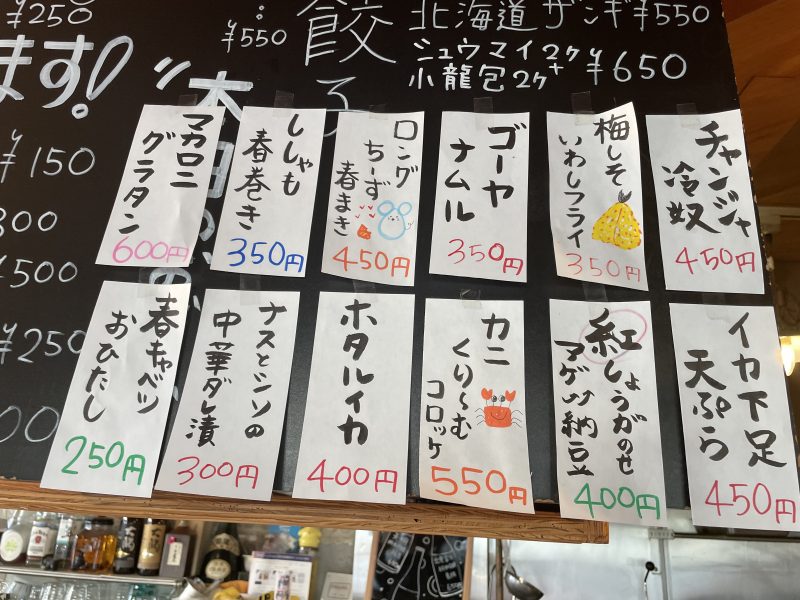 ¥250
¥550
餃子
北海道ザンギ¥550
シュウマイ2ヶ+
小龍包2ヶ
¥650
ます!!
本日の
¥150
300
¥500
¥250
マカロニ
グラタン
600円
ししゃも
春巻き
350円
ロング
ちーず
春まき
450円
ゴーヤ
ナムル
350円
梅しそ
いわしフライ
350円
チャンジャ
冷奴
450円
春キャベツ
おひたし
250円
ナスとシソの
中華ダレ漬
300円
ホタルイカ
400円
カニ
くり〜むコロッケ
550円
紅しょうがのせ
マグロ納豆
400円
イカ下足
天ぷら
450円